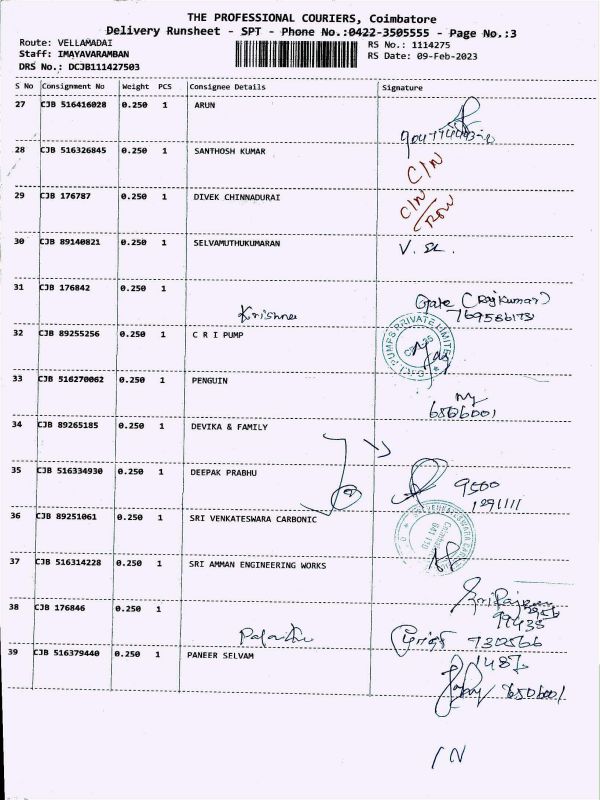 THE PROFESSIONAL COURIERS, Coimbatore
Delivery Runsheet - SPT - Phone No.:0422-3505555 - Page No.:3
Route: VELLAMADAI
RS No.: 1114275
Staff: IMAYAVARAMBAN
RS Date: 09-Feb-2023
DRS No.: DCJB111427503
S No Consignment No Weight PCS Consignee Details Signature
27 CJB 516416028 0.250 1 ARUN
28 CJB 516326845 0.250 1 SANTHOSH KUMAR
C/N
29 CJB 176787 0.250 1 DIVEK CHINNADURAI
C/N
30 CJB 89140821 0.250 1 SELVAMUTHUKUMARAN
31 CJB 176842 0.250 1
Gate (Rajkumar)
Krishna
32 CJB 89255256 0.250 1 C R I PUMP
PUMPS PRIVATE LIMITED
33 CJB 516270062 0.250 1 PENGUIN
6506001
34 CJB 89265185 0.250 1 DEVIKA & FAMILY
35 CJB 516334930 0.250 1 DEEPAK PRABHU
9500
1291111
36 CJB 89251061 0.250 1 SRI VENKATESWARA CARBONIC
37 CJB 516314228 0.250 1 SRI AMMAN ENGINEERING WORKS
38 CJB 176846 0.250 1
99435
730566
39 CJB 516379440 0.250 1 PANEER SELVAM
1487
6506001
IN